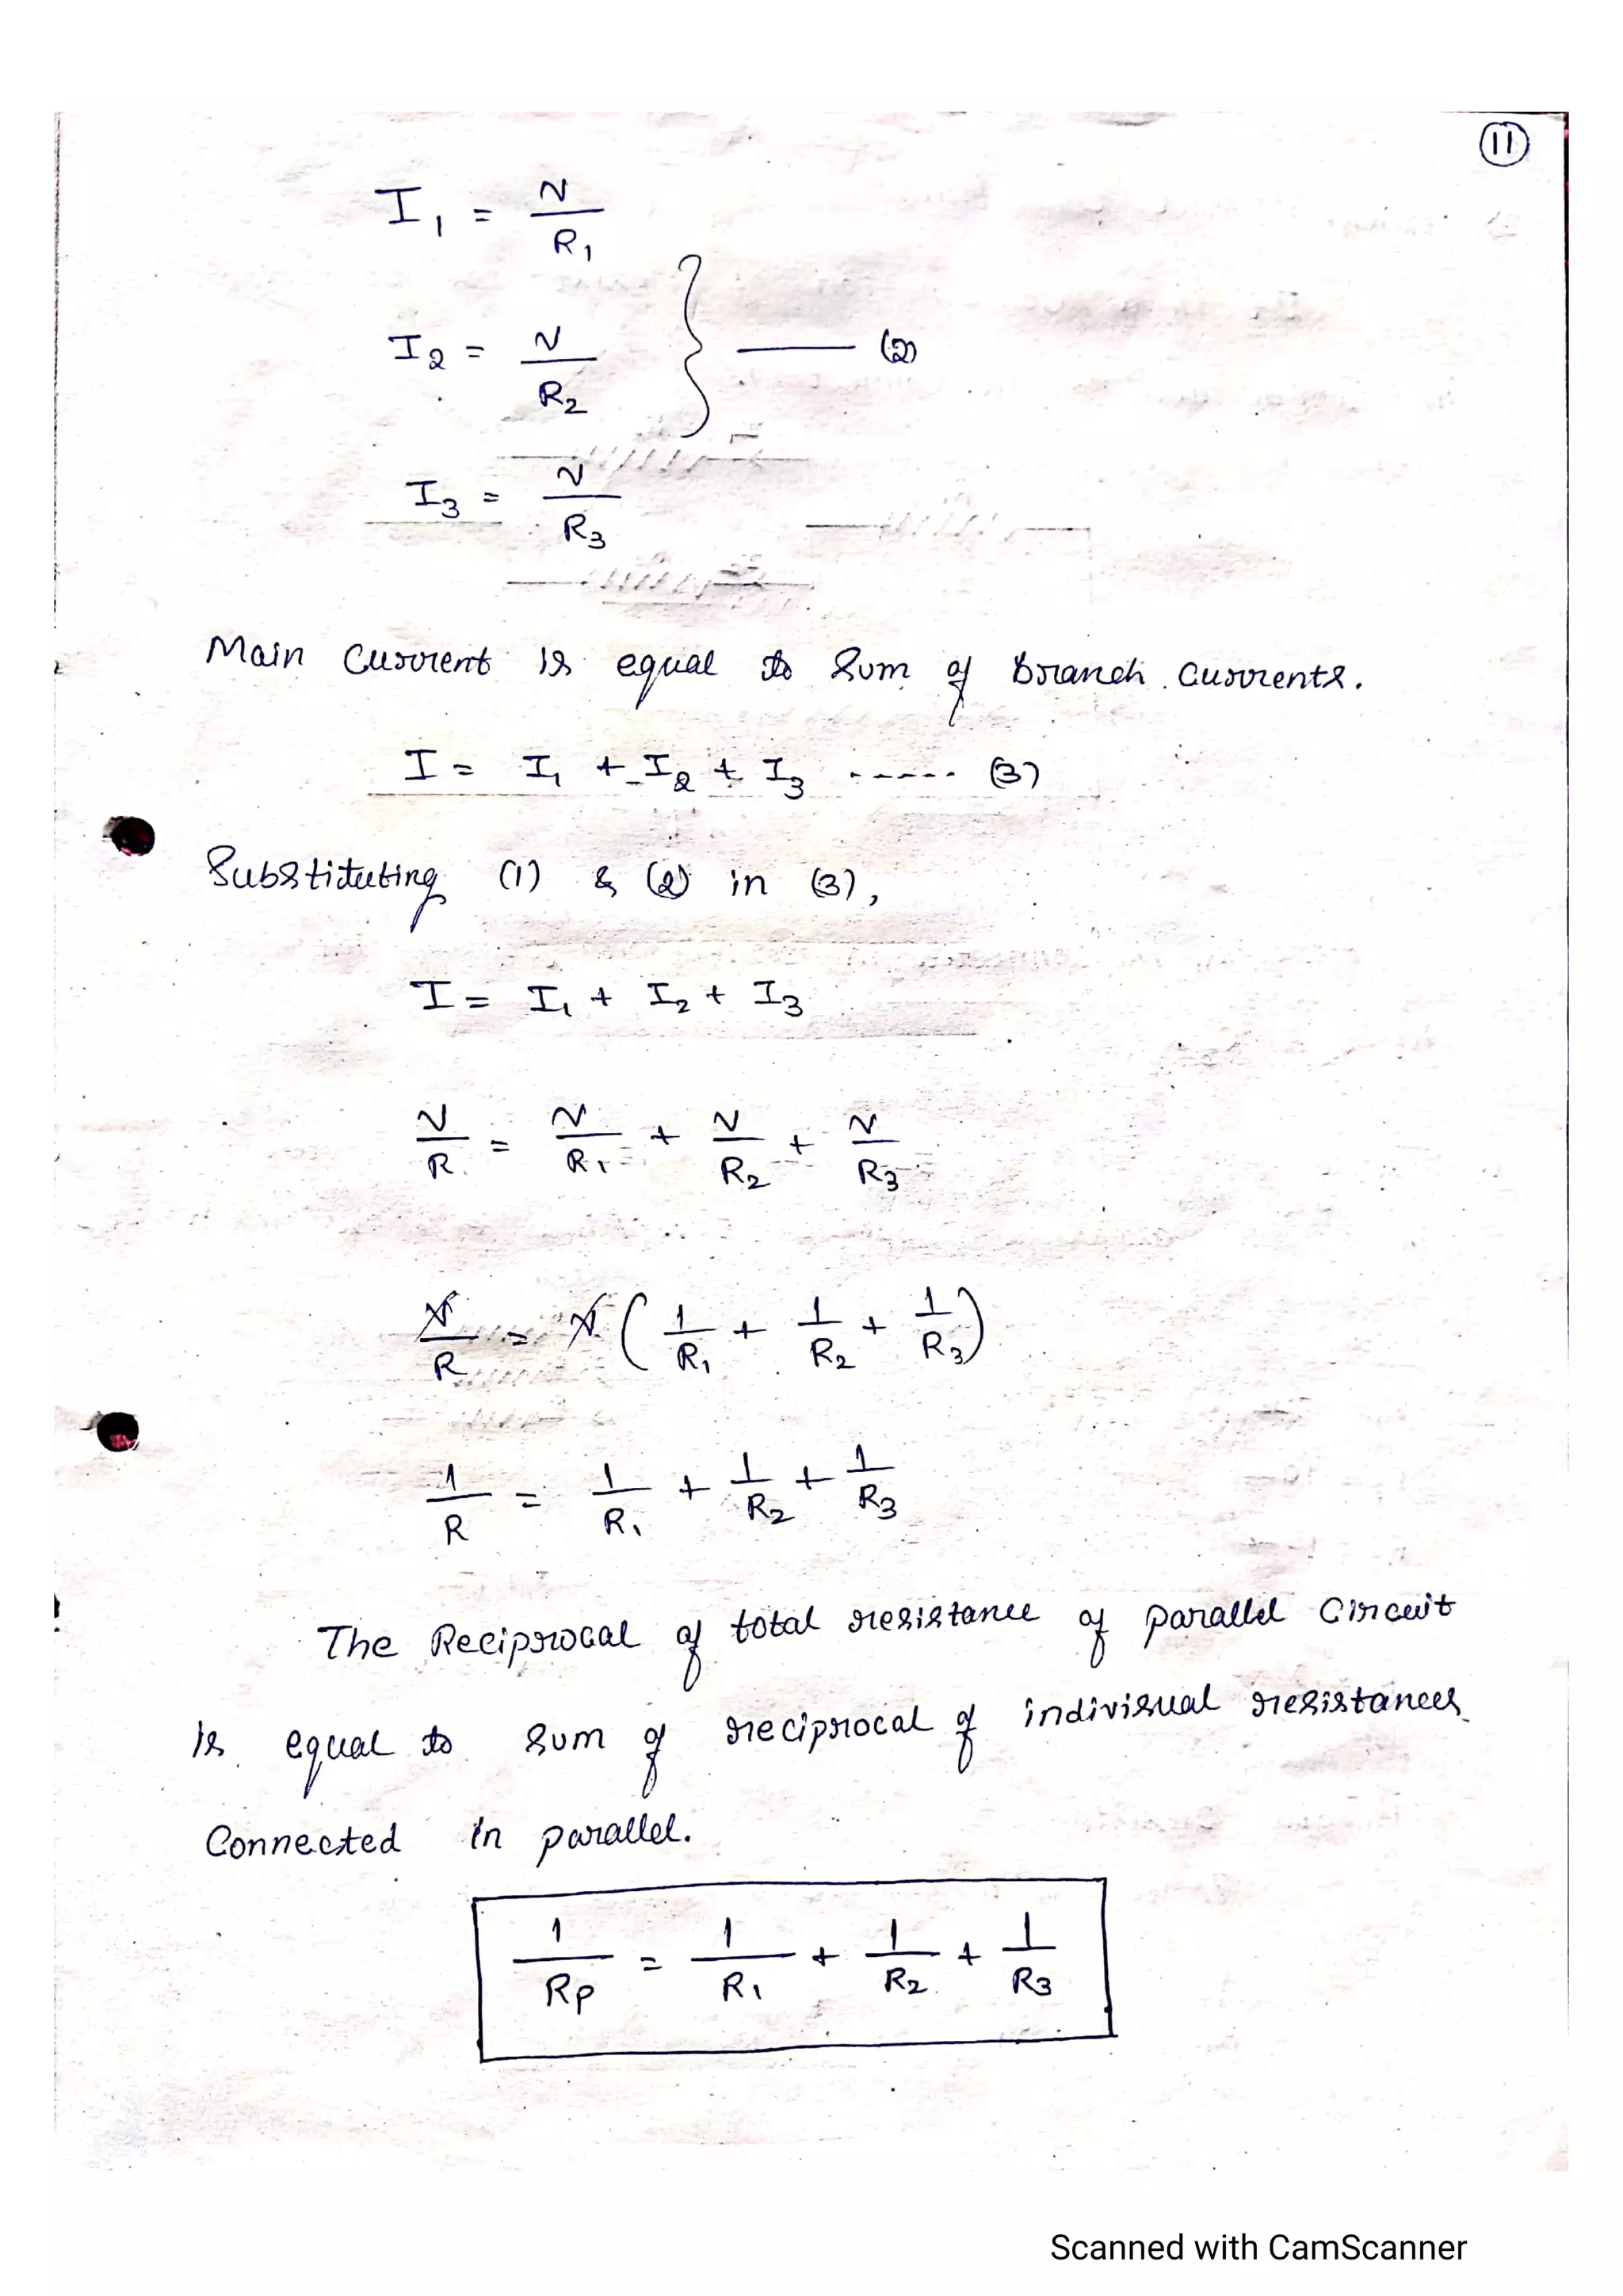 11
I₁ = V/R₁
I₂ = V/R₂ } —— (2)
I₃ = V/R₃
Main Current is equal to Sum of branch Currents.
I = I₁ + I₂ + I₃ ----- (3)
Substituting (1) & (2) in (3),
I = I₁ + I₂ + I₃
V/R = V/R₁ + V/R₂ + V/R₃
V/R = V (1/R₁ + 1/R₂ + 1/R₃)
1/R = 1/R₁ + 1/R₂ + 1/R₃
The Reciprocal of total resistance of parallel Circuit
is equal to Sum of reciprocal of indivisual resistances
Connected in parallel.
1/Rp = 1/R₁ + 1/R₂ + 1/R₃
Scanned with CamScanner